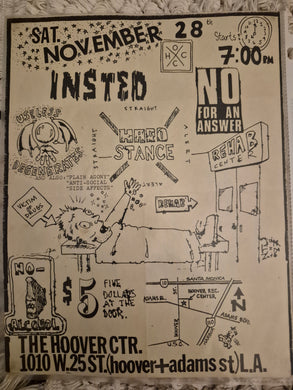 SAT.
NOVEMBER
28th
Starts
7:00PM
OHCC
INSTED
STRAIGHT
STRAIGHT
ALERT
ALERT
HARD
STANCE
NO
FOR AN
ANSWER
USELESS
DEGENERATES
ALSO: "PLAIN AGONY"
"ANTI-SOCIAL"
"SIDE AFFECTS"
REHAB
CENTER
VICTIM
OF
DRUGS
REHAB
NO-
ALCOHOL
$5
FIVE
DOLLARS
AT THE
DOOR.
10
SANTA MONICA
ADAMS B.
HOOVER REC.
CENTER
HOOVER
ADAMS BLVD.
U.S.C.
N
THE HOOVER CTR.
1010 W.25 ST.(hoover+adams st) L.A.